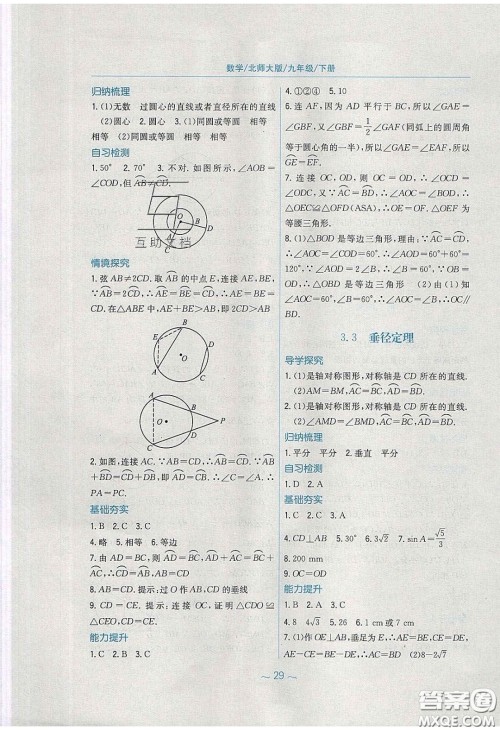 数学/北师大版/九年级/下册
归纳梳理
1. (1)无数　过圆心的直线或者直径所在的直线
(2)圆心　2. 圆心　3. (1)同圆或等圆　相等
相等　(2)同圆或等圆　相等　相等
自习检测
1. 50°　2. 70°　3. 不对. 如图所示, ∠AOB =
∠COD, 但AB≠CD.
O
B
A
D
互助文档
情境探究
1. 弦 AB≠2CD. 取AB的中点 E, 连接 AE, BE,
∵AB=2CD, ∴AE=BE=CD, ∴AE=BE=
CD. 在△ABE 中, AE+BE>AB ∴2CD>AB
E
B
O
D
A
C
A
B
O
P
C
D
2. 如图, 连接 AC. ∵AB=CD, ∴AB=CD. ∴AB
+BD=CD+DB, ∴AD=CB. ∴∠C=∠A. ∴
PA=PC.
基础夯实
1. B　2. C　3. C
4. 略　5. 相等　6. 等边
7. 由 AD=BC, 则AD=BC, AD+AC=BC+
AC, ∴CD=AB, ∴AB=CD
8. AB=CD　提示: 过 O 作 AB,CD 的垂线
9. CD=CE. 提示: 连接 OC, 证明 △CDO≌
△CEO, CD=CE.
能力提升
1. B　2. C　3. C
4. ①②④　5. 10
6. 连 AF, 因为 AD 平行于 BC, 所以∠GAE=
∠GBF, ∠GAF=1/2∠GBF(同弧上的圆周角
等于圆心角的一半), 所以∠GAE=∠EAF, 所以
GE=EF.
7. 连接 OC, OD, 则 OC=OD, ∴∠OCD=
∠ODC. 又∵AC=BD, ∴∠AOC=∠BOD, ∴
△OEC≌△OFD(ASA), ∴OE=OF. △OEF 为
等腰三角形.
8. (1)△BOD 是等边三角形, 理由: ∵∠C+∠D=
∠C+∠AOC=∠C+∠B=60°+60°=
120°. ∵∠AOC=2∠B, ∴∠B=60°, ∵OB=
OD, ∴△OBD 是等边三角形　(2)由(1)知
∠AOC=2∠B, ∠B=60°, ∴∠C=∠B, ∴OC∥
BD.
3.3　垂径定理
导学探究
1. (1)是轴对称图形, 对称轴是 CD 所在的直线.
(2)AM=BM, AC=BC, AD=BD.
2. (1)是轴对称图形, 对称轴是 CD 所在的直线.
(2)∠AMD=∠BMD, AC=BC, AD=BD.
归纳梳理
1. 平分　平分　2. 垂直　平分
自习检测
1. D　2. 10
基础夯实
1. D　2. B　3. D
4. CD⊥AB　5. 30°　6. 3√2　7. sin A=√5/3
8. 200 mm
9. OC=OD
能力提升
1. A　2. D　3. C
4. 8　4√3　5. 26　6. 1 cm 或 7 cm
7. (1)作 OE⊥AB, 垂足为 E, ∴AE=BE, CE=DE,
AE-CE=BE-DE, ∴AC=BD　(2)8-2√7
~ 29 ~
答案圈
MXQE.COM